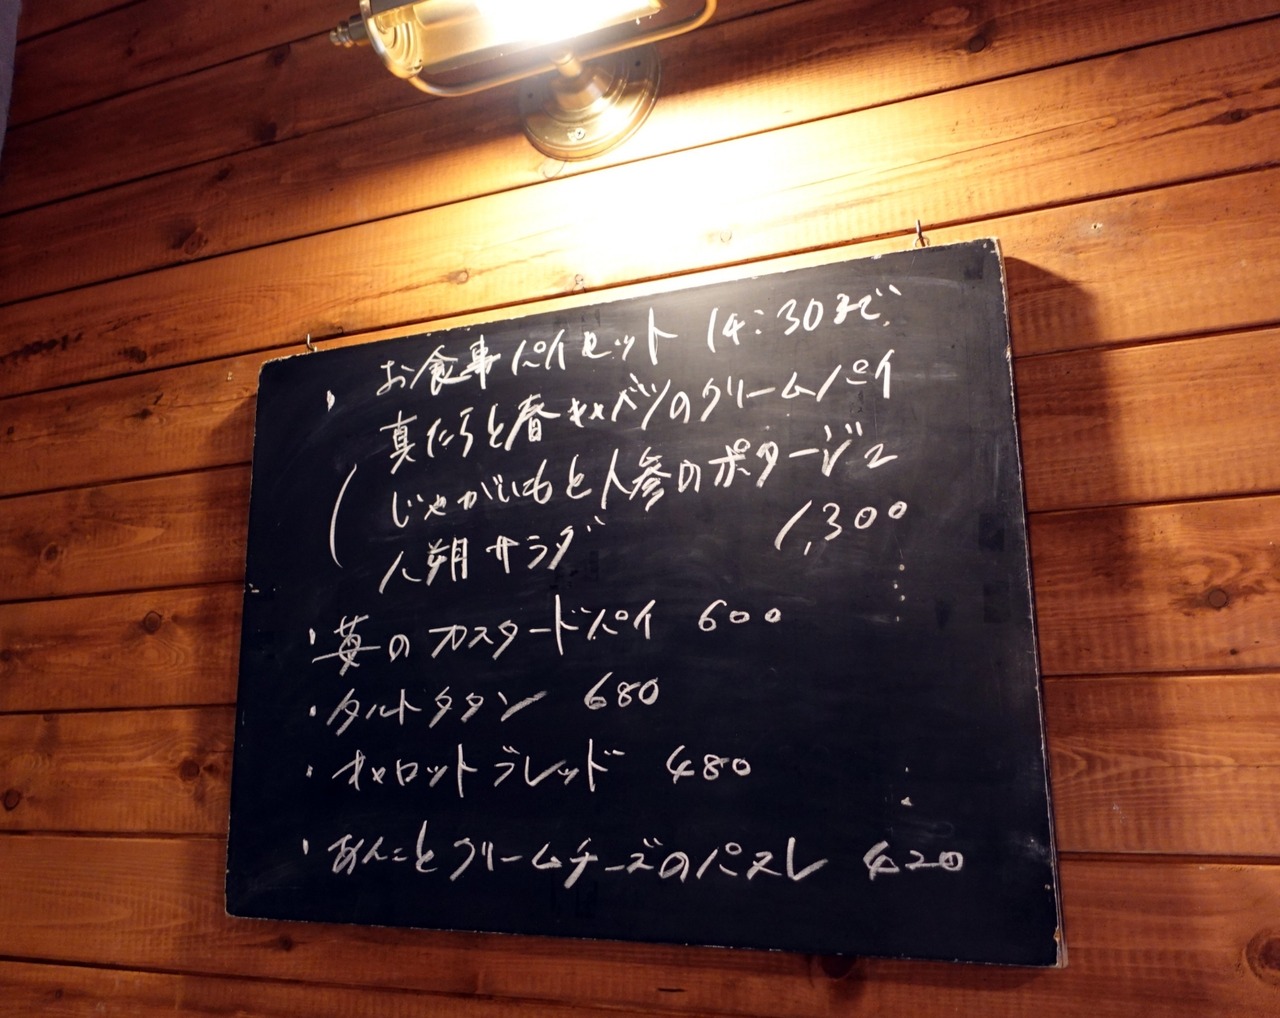 ・お食事パイセット 14:30まで
真たらと春キャベツのクリームパイ
じゃがいもと人参のポタージュ
八朔サラダ 1,300
・苺のカスタードパイ 600
・タルトタタン 680
・キャロットブレッド 480
・あんことクリームチーズのパスレ 420